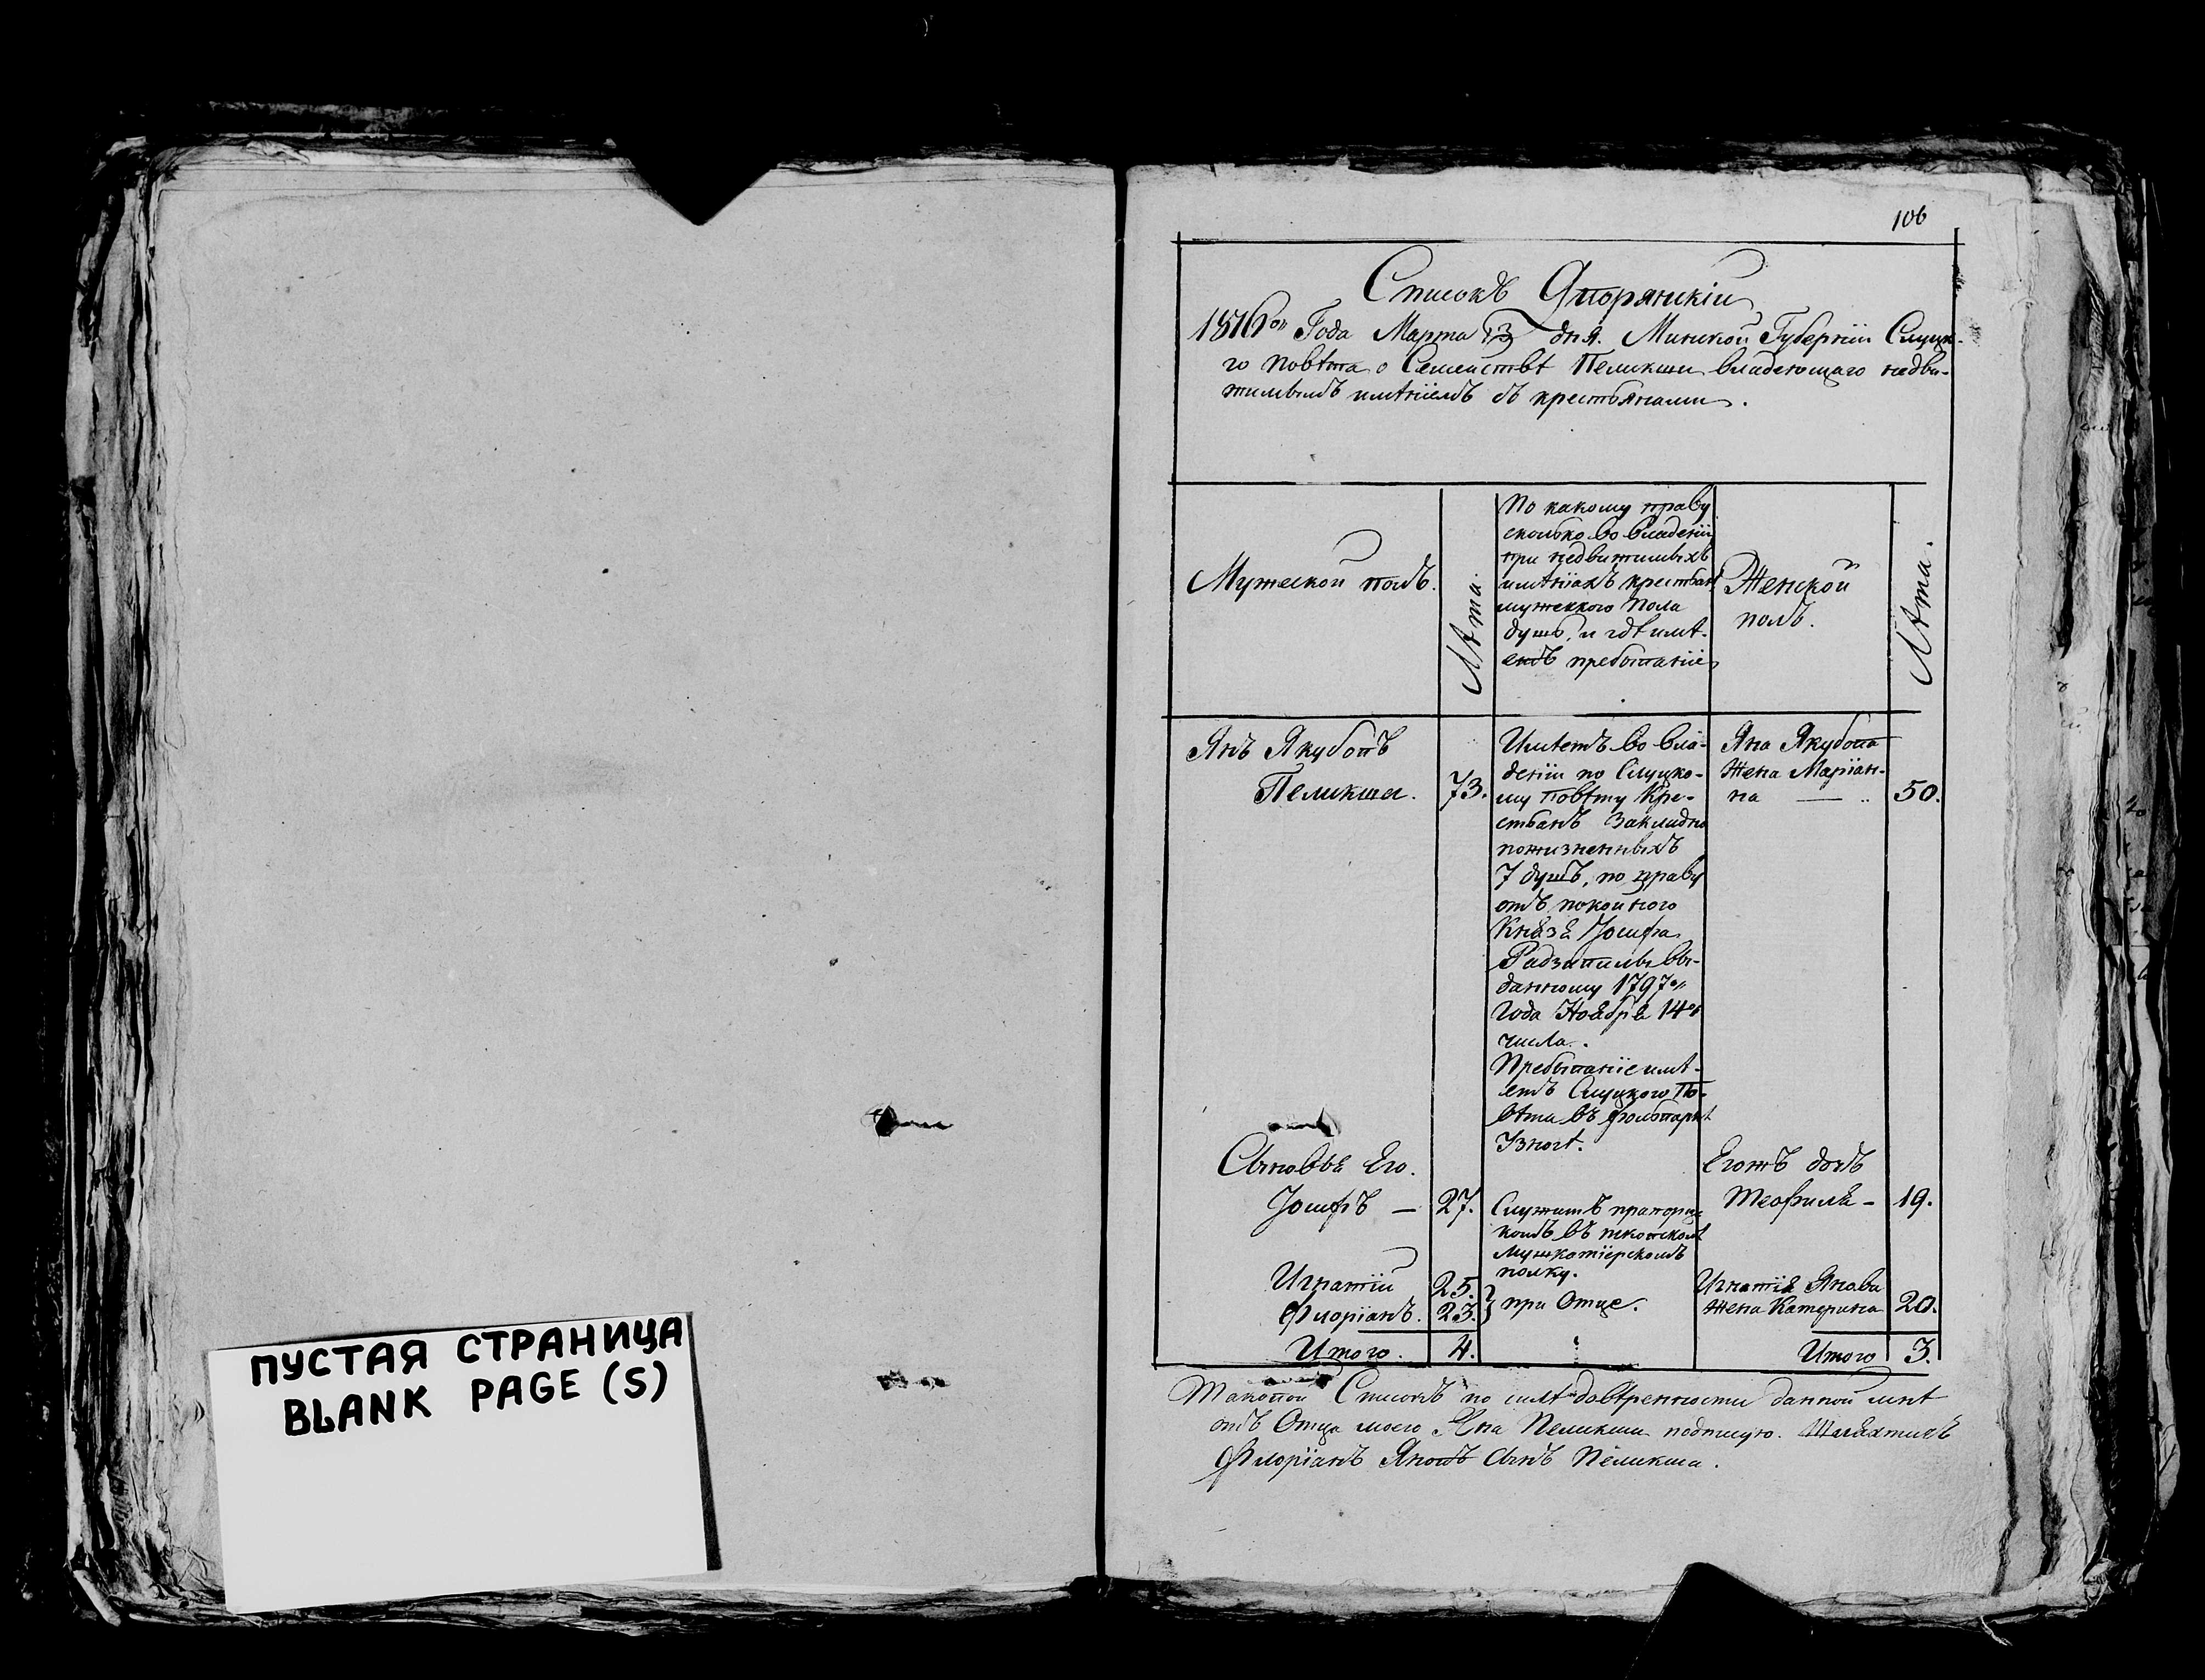 ПУСТАЯ СТРАНИЦА
BLANK PAGE (S)
106
Списокъ Дворянскій
1816го Года Марта дня. Минской Губерніи Слуцк-
го повѣта о Семействѣ Пеликши владеющаго недви-
жимымъ имѣніемъ съ крестьянами.
Мужеской полъ.
Лѣта.
По какому праву
сколько во владеніи
при недвижимыхъ
имѣніяхъ крестьянъ
мужеского пола
душъ, и гдѣ имѣ-
етъ пребываніе
Женской
полъ.
Лѣта.
Янъ Якубовъ
Пеликша.
73.
Имѣетъ во вла-
деніи по Слуцко-
му повѣту Кре-
стьянъ Закладно
пожизненныхъ
7 душъ, по праву
отъ покойного
Князя Іосифа
Радзивилы вы-
данному 1797го
года Ноября 14го
числа.
Пребываніе имѣ-
етъ Слуцкого По-
вѣта въ фольваркѣ
Узногѣ.
Яна Якубова
Жена Маріан-
на —
50.
Сыновья Его.
Іосифъ — 27.
Служитъ прапорщи
комъ въ псковскомъ
Мушкатіерскомъ
полку.
Егожъ дочь
Теофиля — 19.
Игнатій 25.
Флоріанъ. 23.
при Отце.
Игнатія Янова
жена Катерина 20.
Итого. 4.
Итого 3.
Таковой Списокъ по силѣ довѣренности данной мнѣ
отъ Отца моего Яна Пеликши подписую. Шляхтичъ
Флоріанъ Яновъ Сынъ Пеликша.